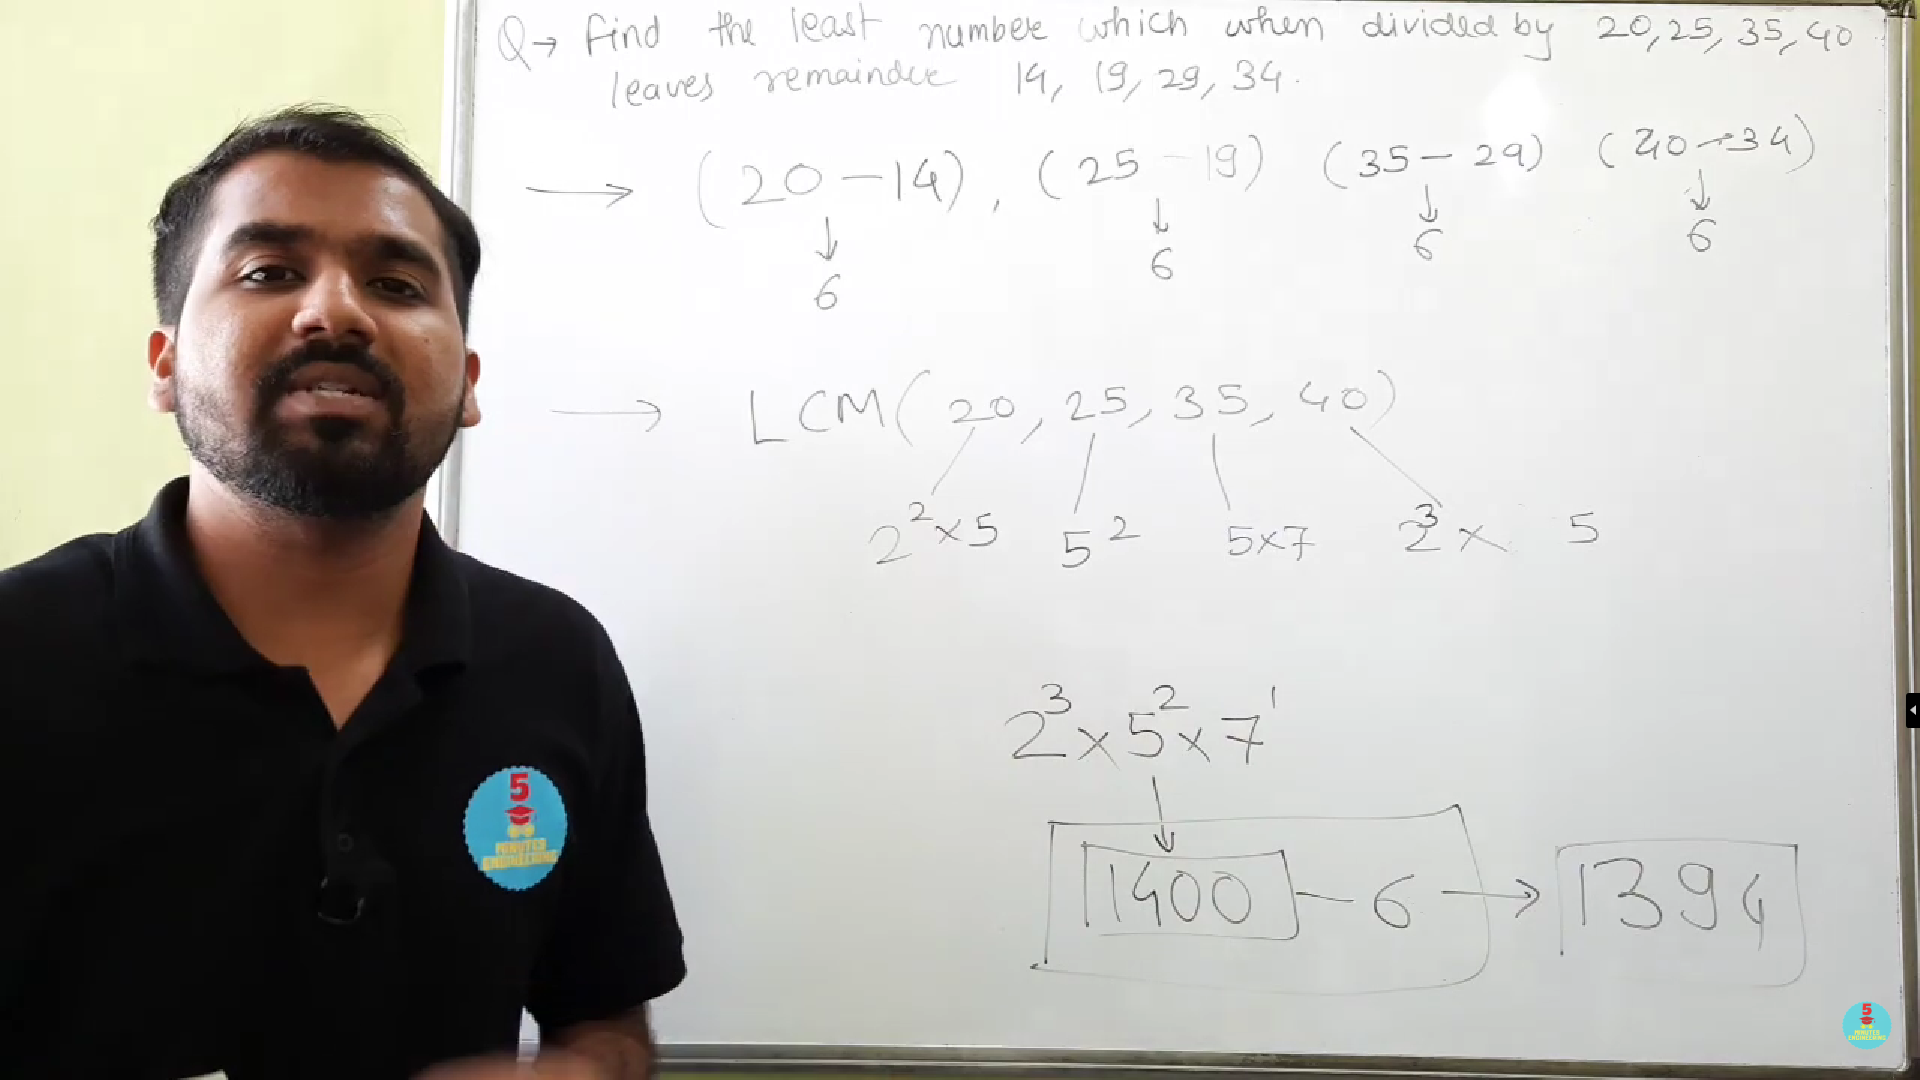 Q→ Find the least number which when divided by 20, 25, 35, 40
leaves remainder 14, 19, 29, 34.
→ (20 - 14), (25 - 19) (35 - 29) (40 - 34)
↓ ↓ ↓ ↓
6 6 6 6
→ LCM (20, 25, 35, 40)
2² × 5 5² 5×7 2³ × 5
2³ × 5² × 7¹
↓
1400 - 6 → 1394
5
MINUTES
ENGINEERING
5
MINUTES
ENGINEERING